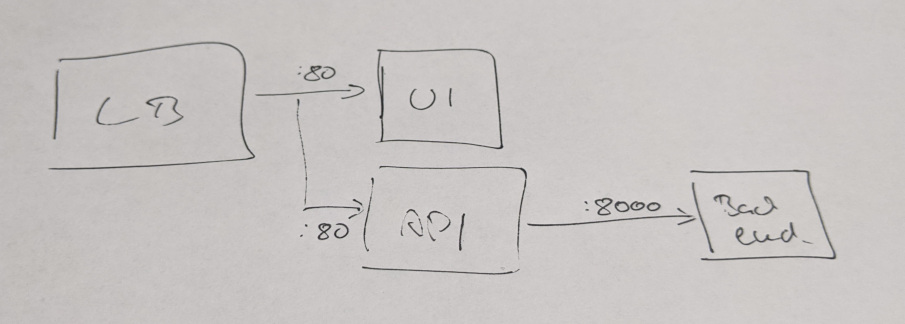 LB
:80
UI
:80
API
:8000
Back
end.